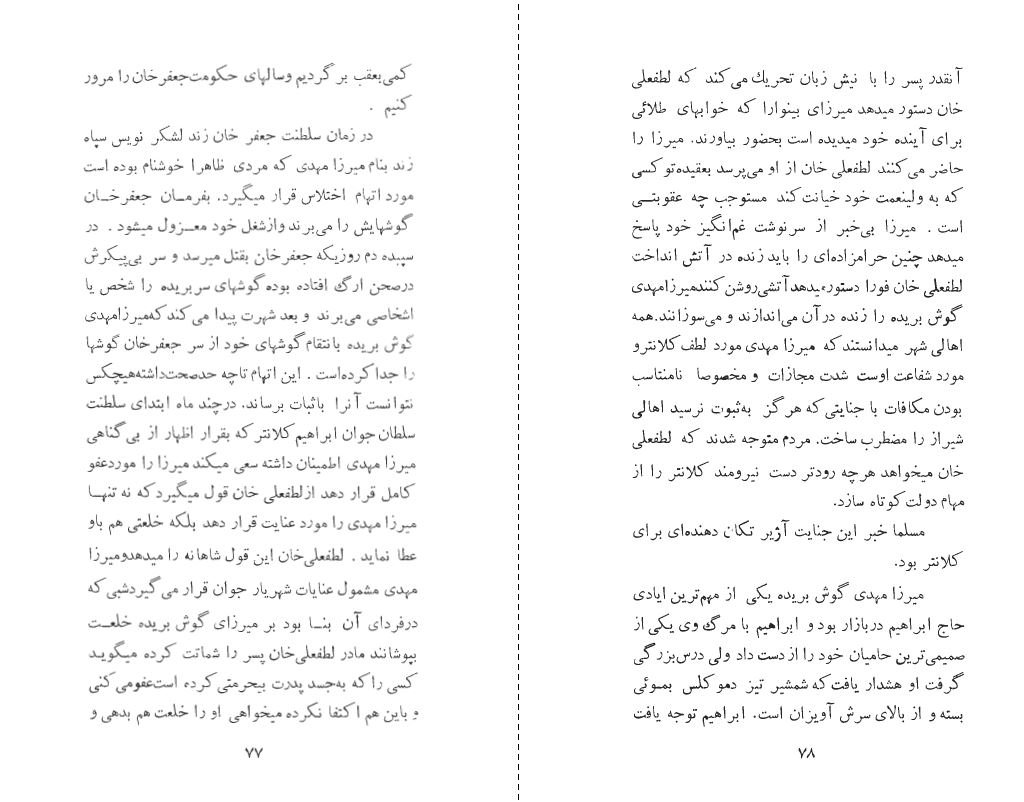 کمی‌بعقب بر گردیم وسالهای حکومت‌جعفرخان را مرور
کنیم .
در زمان سلطنت جعفر خان زند لشکر نویس سپاه
زند بنام میرزا مهدی که مردی ظاهرا خوشنام بوده است
مورد اتهام اختلاس قرار میگیرد. بفرمــان جعفرخــان
گوشهایش را می‌برند وازشغل خود معــزول میشود . در
سپیده دم روزیکه جعفرخان بقتل میرسد و سر بی‌پیکرش
درصحن ارگ افتاده بوده گوشهای سر بریده را شخص یا
اشخاصی می‌برند و بعد شهرت پیدا می کند که‌میرزامهدی
گوش بریده بانتقام گوشهای خود از سر جعفرخان گوشها
را جدا کرده‌است . این اتهام تاچه حدصحت‌داشته‌هیچکس
نتوانست آنرا باثبات برساند. درچند ماه ابتدای سلطنت
سلطان جوان ابراهیم کلانتر که بقرار اظهار از بی گناهی
میرزا مهدی اطمینان داشته سعی میکند میرزا را موردعفو
کامل قرار دهد ازلطفعلی خان قول میگیرد که نه تنهــا
میرزا مهدی را مورد عنایت قرار دهد بلکه خلعتی هم باو
عطا نماید . لطفعلی‌خان این قول شاهانه را میدهدومیرزا
مهدی مشمول عنایات شهریار جوان قرار می گیردشبی که
درفردای آن بنــا بود بر میرزای گوش بریده خلعــت
بپوشانند مادر لطفعلی‌خان پسر را شماتت کرده میگویـد
کسی را که به‌جسد پدرت بیحرمتی کرده است‌عفومی کنی
و باین هم اکتفا نکرده میخواهی او را خلعت هم بدهی و
۷۷
آنقدر پسر را با نیش زبان تحریك می کند که لطفعلی
خان دستور میدهد میرزای بینوارا که خوابهای طلائی
برای آینده خود میدیده است بحضور بیاورند. میرزا را
حاضر می کنند لطفعلی خان از او می‌پرسد بعقیده‌تو کسی
که به ولینعمت خود خیانت کند مستوجب چه عقوبتــی
است . میرزا بی‌خبر از سرنوشت غم‌انگیز خود پاسخ
میدهد چنین حرامزاده‌ای را باید زنده در آتش انداخت
لطفعلی خان فورا دستورمیدهدآتشی‌روشن کنندمیرزامهدی
گوش بریده را زنده درآن می‌اندازند و می‌سوزانند.همه
اهالی شهر میدانستند که میرزا مهدی مورد لطف کلانترو
مورد شفاعت اوست شدت مجازات و مخصوصا نامتناسب
بودن مکافات با جنایتی که هرگز به‌ثبوت نرسید اهالی
شیراز را مضطرب ساخت. مردم متوجه شدند که لطفعلی
خان میخواهد هرچه رودتر دست نیرومند کلانتر را از
مهام دولت کوتاه سازد.
مسلما خبر این جنایت آژیر تکان دهنده‌ای برای
کلانتر بود.
میرزا مهدی گوش بریده یکی از مهم‌ترین ایادی
حاج ابراهیم دربازار بود و ابراهیم با مرگ وی یکی از
صمیمی‌ترین حامیان خود را از دست داد ولی درس‌بزرگی
گرفت او هشدار یافت که شمشیر تیز دمو کلس بمـوئی
بسته و از بالای سرش آویزان است. ابراهیم توجه یافت
۷۸